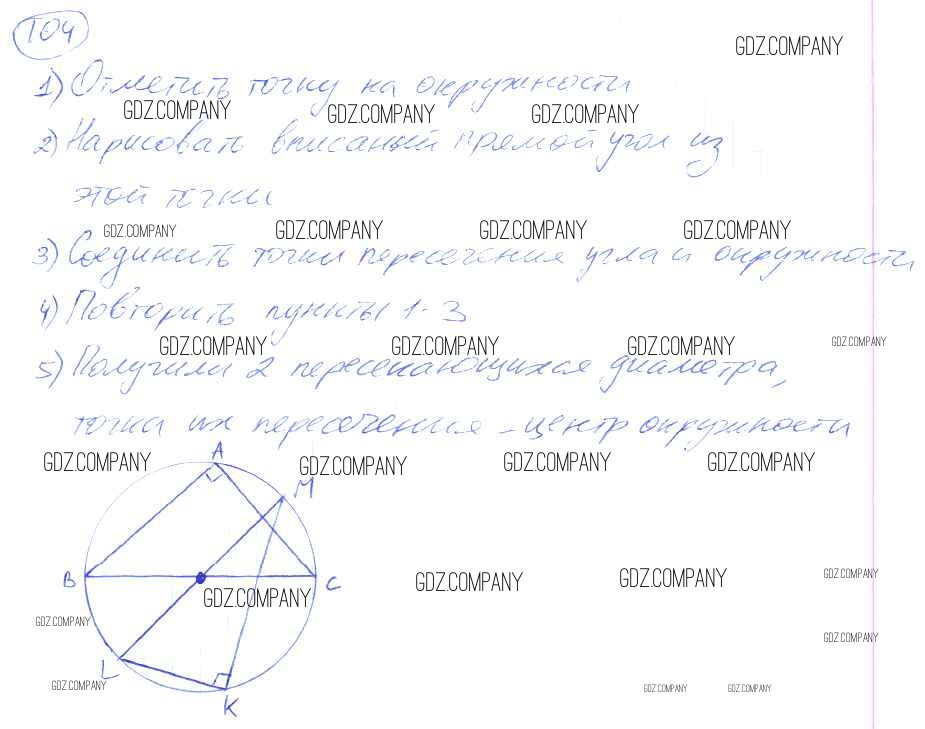 704
GDZ.COMPANY
1) Отметить точку на окружности
GDZ.COMPANY GDZ.COMPANY GDZ.COMPANY
2) Нарисовать вписаный прямой угол из
этой точки
GDZ.COMPANY GDZ.COMPANY GDZ.COMPANY GDZ.COMPANY
3) Соединить точки пересечения угла и окружности
4) Повторить пункты 1-3
GDZ.COMPANY GDZ.COMPANY GDZ.COMPANY GDZ.COMPANY
5) Получили 2 пересекающихся диаметра,
точка их пересечения - центр окружности
A
GDZ.COMPANY GDZ.COMPANY GDZ.COMPANY GDZ.COMPANY
M
B C
GDZ.COMPANY GDZ.COMPANY GDZ.COMPANY
GDZ.COMPANY
GDZ.COMPANY
GDZ.COMPANY
L
GDZ.COMPANY GDZ.COMPANY GDZ.COMPANY
K